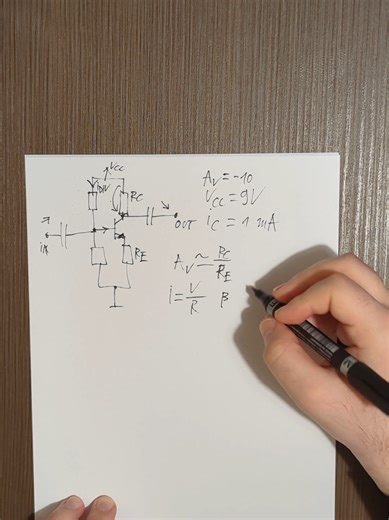 VCC
RC
OUT
IN
RE
Av = -10
VCC = 9V
ic = 1 mA
Av ≃ RC/RE
i = V/R β